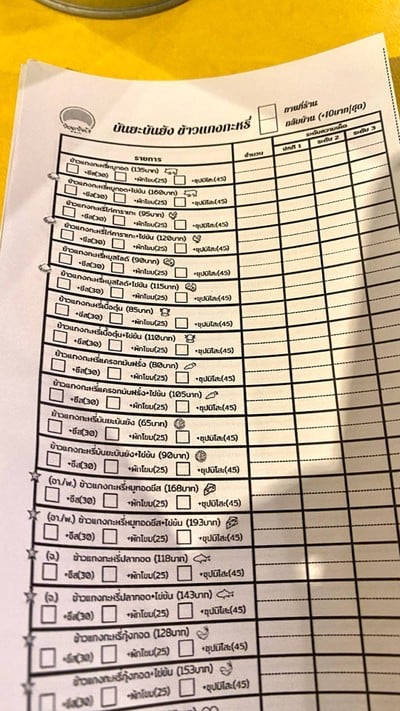 บันยะบันยัง ข้าวแกงกะหรี่
ทานที่ร้าน
กลับบ้าน (+10บาท/ชุด)
รายการ
จำนวน
ระดับความเผ็ด
ปกติ 1
ระดับ 2
ระดับ 3
ข้าวแกงกะหรี่หมูทอด (135บาท)
+ชีส(30) +ผักโขม(25) +ซุปมิโสะ(45)
ข้าวแกงกะหรี่หมูทอด+ไข่ข้น (160บาท)
+ชีส(30) +ผักโขม(25) +ซุปมิโสะ(45)
ข้าวแกงกะหรี่ไก่คาราเกะ (95บาท)
+ชีส(30) +ผักโขม(25) +ซุปมิโสะ(45)
ข้าวแกงกะหรี่ไก่คาราเกะ+ไข่ข้น (120บาท)
+ชีส(30) +ผักโขม(25) +ซุปมิโสะ(45)
ข้าวแกงกะหรี่หมูสไลด์ (90บาท)
+ชีส(30) +ผักโขม(25) +ซุปมิโสะ(45)
ข้าวแกงกะหรี่หมูสไลด์+ไข่ข้น (115บาท)
+ชีส(30) +ผักโขม(25) +ซุปมิโสะ(45)
ข้าวแกงกะหรี่เนื้อตุ๋น (85บาท)
+ชีส(30) +ผักโขม(25) +ซุปมิโสะ(45)
ข้าวแกงกะหรี่เนื้อตุ๋น+ไข่ข้น (110บาท)
+ชีส(30) +ผักโขม(25) +ซุปมิโสะ(45)
ข้าวแกงกะหรี่แครอทมันฝรั่ง (80บาท)
+ชีส(30) +ผักโขม(25) +ซุปมิโสะ(45)
ข้าวแกงกะหรี่แครอทมันฝรั่ง+ไข่ข้น (105บาท)
+ชีส(30) +ผักโขม(25) +ซุปมิโสะ(45)
ข้าวแกงกะหรี่บันยะบันยัง (65บาท)
+ชีส(30) +ผักโขม(25) +ซุปมิโสะ(45)
ข้าวแกงกะหรี่บันยะบันยัง+ไข่ข้น (90บาท)
+ชีส(30) +ผักโขม(25) +ซุปมิโสะ(45)
(อา./พ.) ข้าวแกงกะหรี่หมูทอดชีส (168บาท)
+ชีส(30) +ผักโขม(25) +ซุปมิโสะ(45)
(อา./พ.) ข้าวแกงกะหรี่หมูทอดชีส+ไข่ข้น (193บาท)
+ชีส(30) +ผักโขม(25) +ซุปมิโสะ(45)
(จ.) ข้าวแกงกะหรี่ปลาทอด (118บาท)
+ชีส(30) +ผักโขม(25) +ซุปมิโสะ(45)
(จ.) ข้าวแกงกะหรี่ปลาทอด+ไข่ข้น (143บาท)
+ชีส(30) +ผักโขม(25) +ซุปมิโสะ(45)
ข้าวแกงกะหรี่กุ้งทอด (128บาท)
+ชีส(30) +ผักโขม(25) +ซุปมิโสะ(45)
ข้าวแกงกะหรี่กุ้งทอด+ไข่ข้น (153บาท)
+ชีส(30) +ผักโขม(25) +ซุปมิโสะ(45)